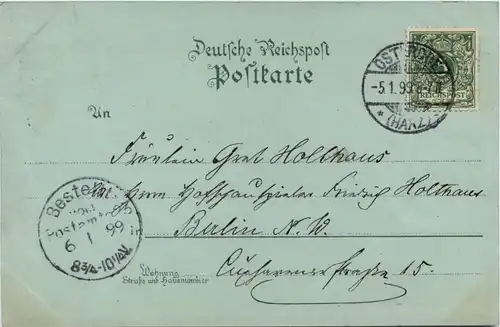 Deutsche Reichspost
Postkarte
OSTERODE
-5.1.99
* (HARZ)
REICHSPOST
An
Fräulein Gret Holthaus
Adr. Herrn Hofschauspieler Friedrich Holthaus
in
Berlin N. W.
Wohnung
Straße und Hausnummer
Cuxhavenerstraße 15.
Bestellt
vom
Postamte
6 1 99
8 3/4-10 1/4V.